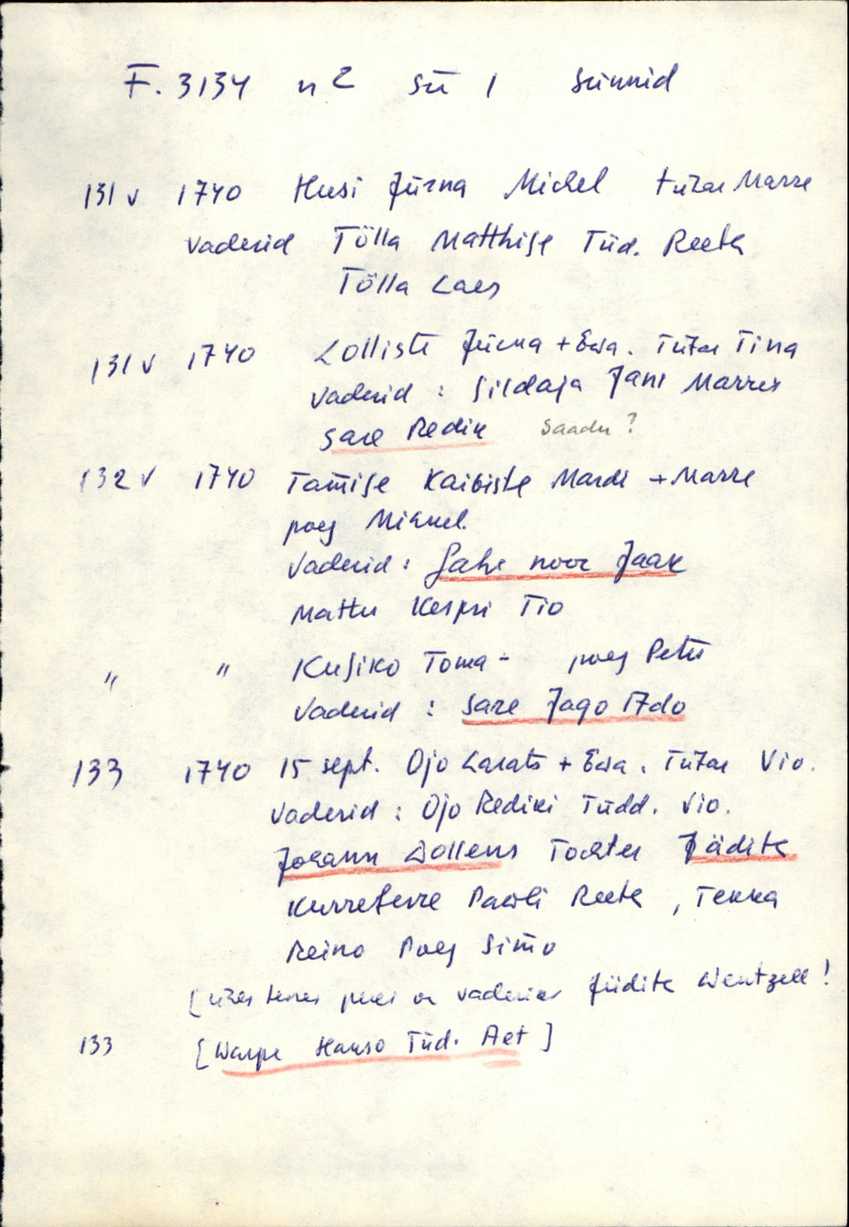 F. 3134 n 2 sü 1 Sünnid
131 v 1740 Husi Jürna Michel tütar Marre
vaderid Tölla Matthise Tüd. Reeta
Tölla Laes
131 v 1740 Lolliste Jürna + Ewa. Tütar Tina
vaderid : Sildaja Jani Marret
Sare Redik Saadu ?
132 v 1740 Tam̄ise Kaibiste Mardi + Marre
poeg Mihkel
vaderid : Sahe noor Jaak
Mattu Kespri Tio
" " Kusiko Toma - poeg Petri
vaderid : Sare Jago Ado
133 1740 15 sept. Ojo Larats + Ewa. Tütar Vio.
vaderid : Ojo Rediki Tüdd. Vio.
Johann Dollens Tochter Jüdith
Kurreferre Pawli Reeta ,
Reino Poeg Sim̄o
[ on vaderiks Jüdith Wentzell !
133 [Warpe Hanso Tüd. Aet ]